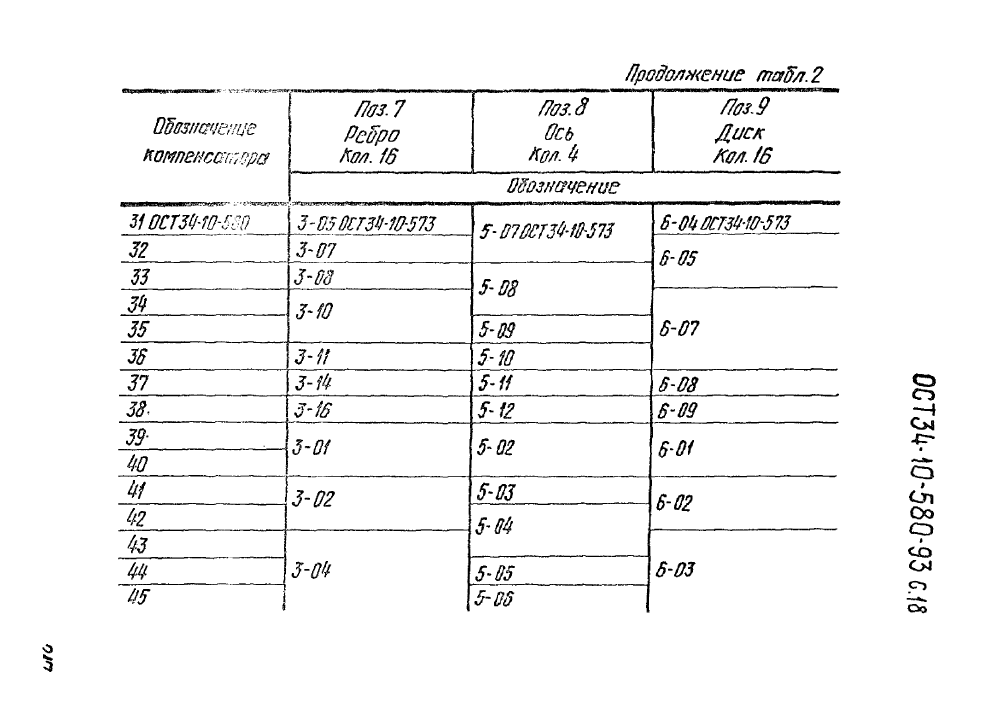 Продолжение табл.2
Обозначение компенсатора | Поз.7 Ребро Кол. 16 | Поз.8 Ось Кол. 4 | Поз.9 Диск Кол. 16
Обозначение
31 ОСТ34-10-580 | 3-05 ОСТ34-10-573 | 5-07 ОСТ34-10-573 | 6-04 ОСТ34-10-573
32 | 3-07 | 6-05
33 | 3-08 | 5-08
34 | 3-10 | 6-07
35 | 5-09
36 | 3-11 | 5-10
37 | 3-14 | 5-11 | 6-08
38 | 3-16 | 5-12 | 6-09
39 | 3-01 | 5-02 | 6-01
40
41 | 3-02 | 5-03 | 6-02
42 | 5-04
43 | 3-04 | 6-03
44 | 5-05
45 | 5-06
ОСТ34-10-580-93 с.18